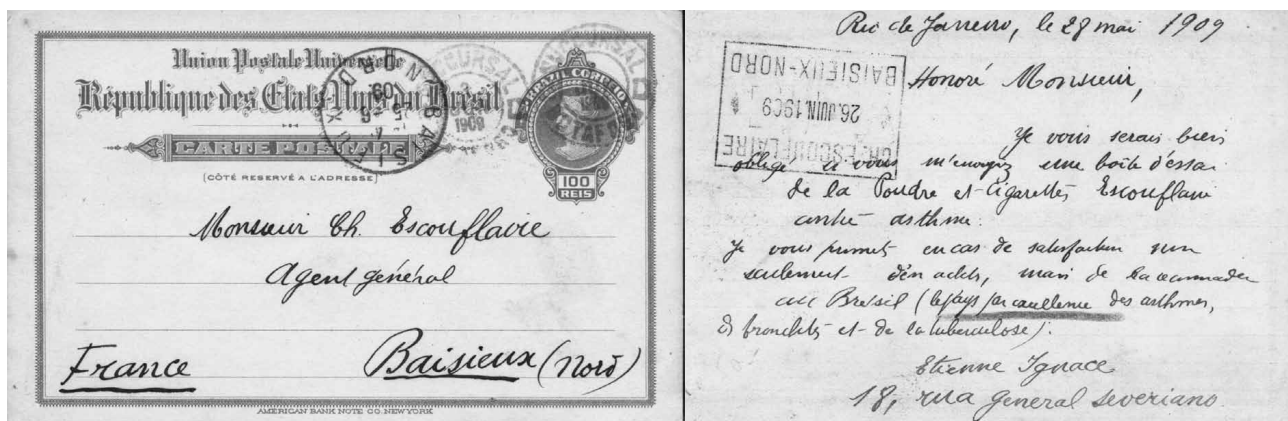 Union Postale Universelle
République des États-Unis du Brésil
CARTE POSTALE
(CÔTÉ RESERVÉ A L'ADRESSE)
BRAZIL CORREIO
100
REIS
1909
Monsieur Ch. Escouflaire
Agent général
France
Baisieux (Nord)
AMERICAN BANK NOTE CO. NEW YORK
Rio de Janeiro, le 28 mai 1909
CH. ESCOUFLAIRE
26 JUIN. 1909
BAISIEUX-NORD
Honoré Monsieur,
Je vous serais bien
obligé si vous m'envoyez une boîte d'essai
de la Poudre et Cigarettes Escouflaire
contre asthme.
Je vous promets en cas de satisfaction non
seulement d'en acheter, mais de la recommander
au Bresil (le pays par excellence des asthmes,
des bronchites et de la tuberculose).
Etienne Ignace
18, rua general severiano